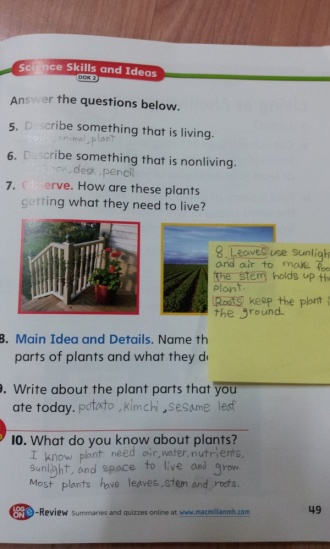 Science Skills and Ideas
DOK 2
Answer the questions below.
5. Describe something that is living.
animal, plant
6. Describe something that is nonliving.
desk, pencil
7. Observe. How are these plants
getting what they need to live?
8. Leaves use sunligh
and air to make foo
the stem holds up the
plant.
Roots keep the plant i
the ground.
8. Main Idea and Details. Name th
parts of plants and what they do
9. Write about the plant parts that you
ate today. potato, kimchi, sesame leaf
10. What do you know about plants?
I know plant need air, water, nutrients,
sunlight, and space to live and grow.
Most plants have leaves, stem and roots.
LOG ON e-Review Summaries and quizzes online at www.macmillanmh.com 49